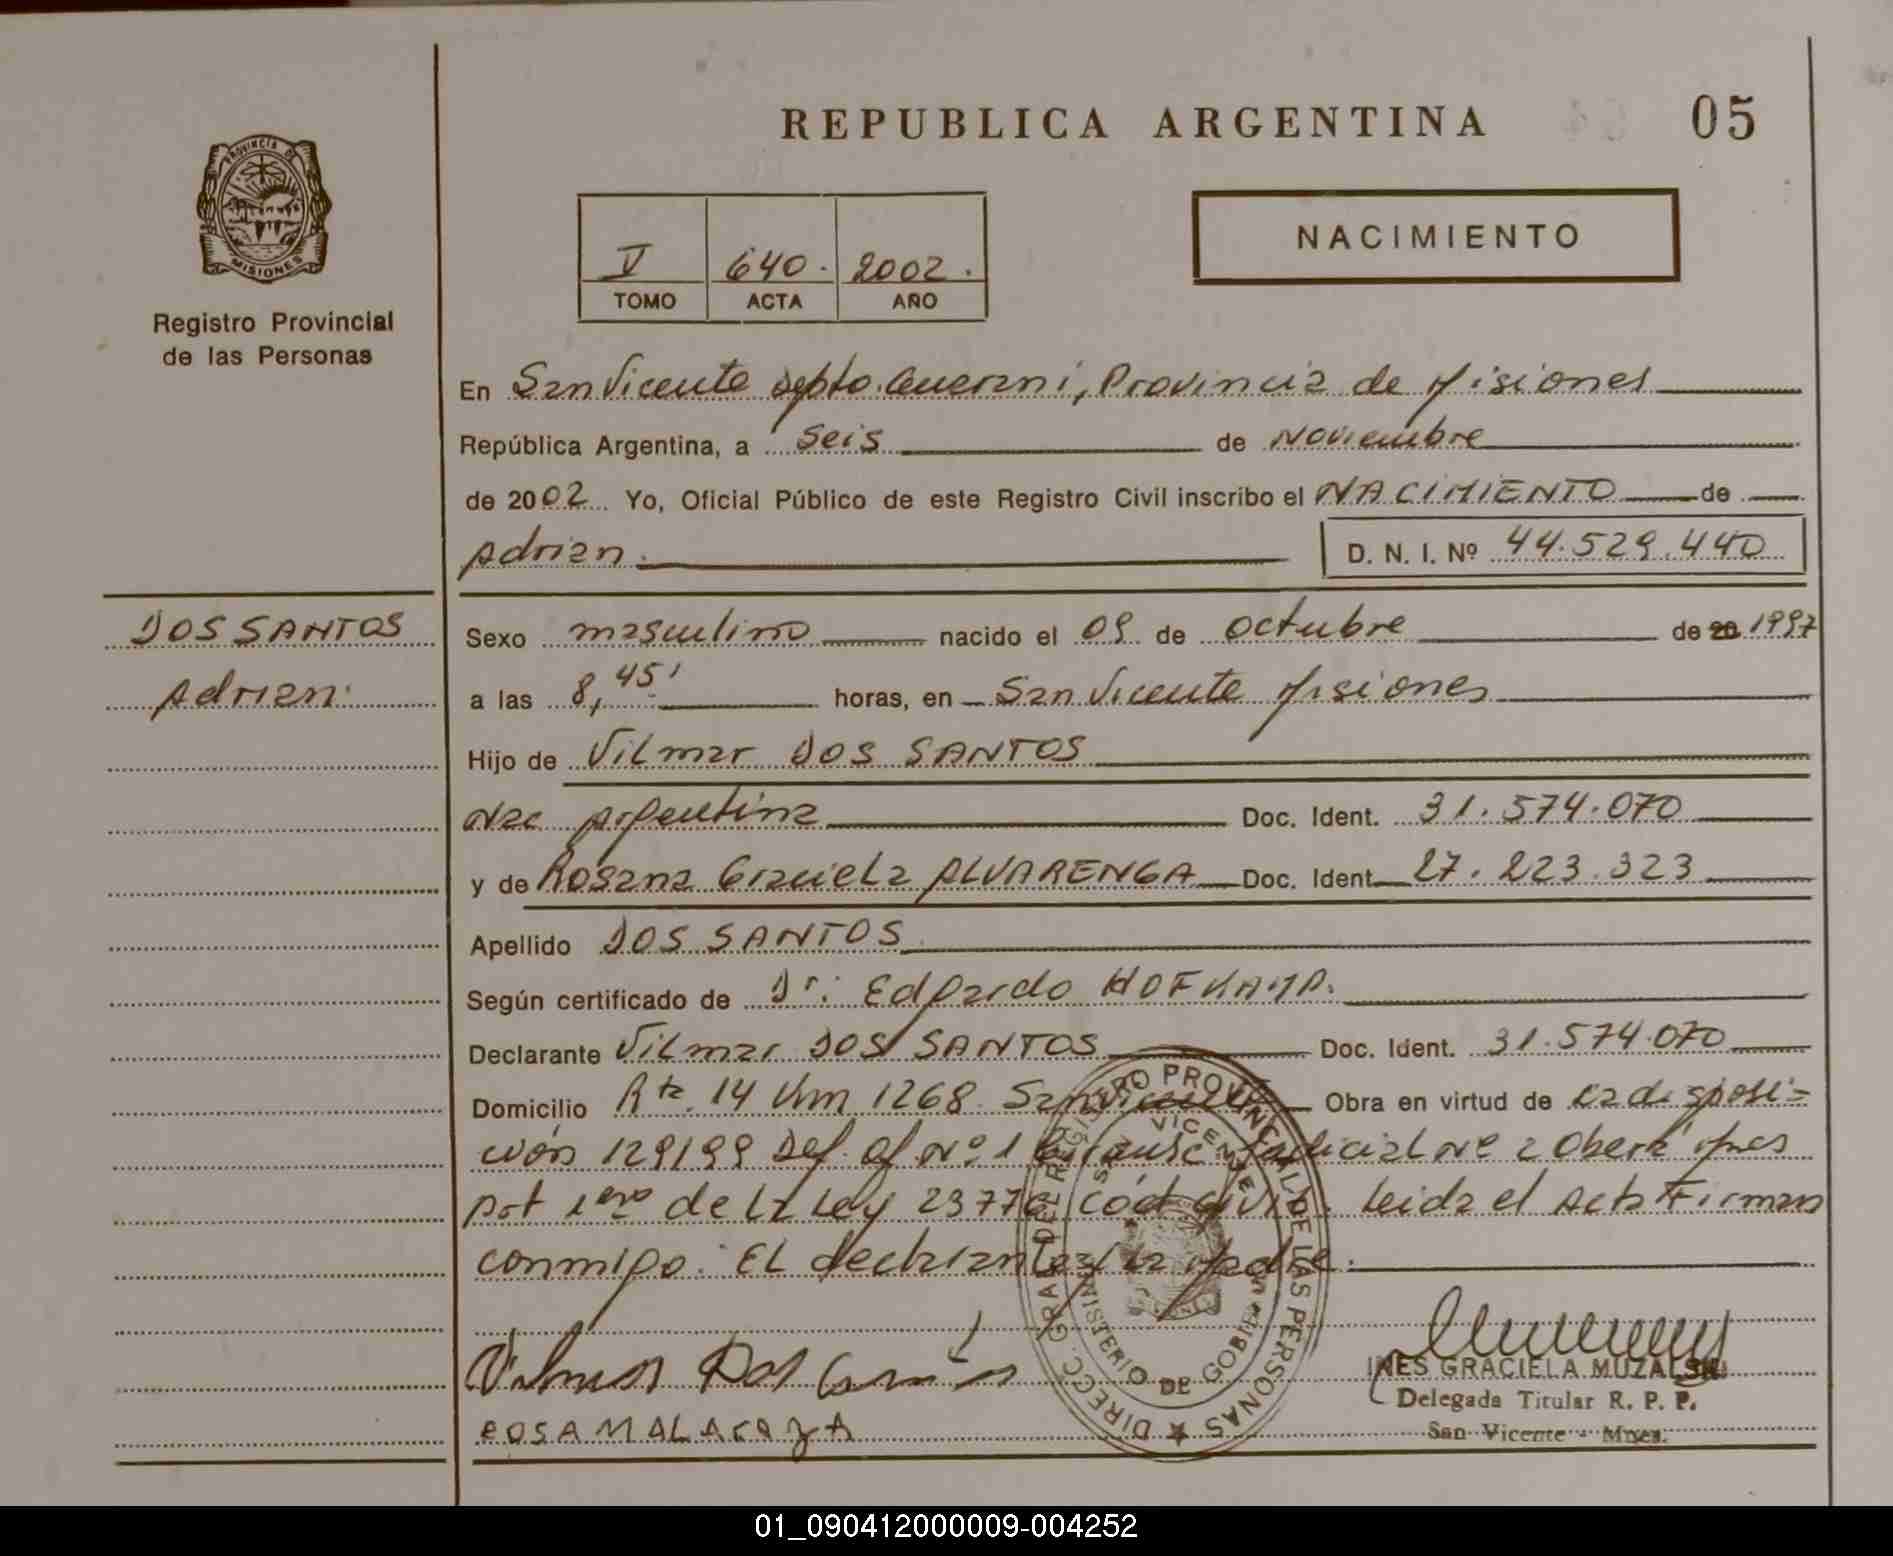 REPUBLICA ARGENTINA
05
PROVINCIA DE
MISIONES
Registro Provincial
de las Personas
V 640. 2002.
TOMO ACTA AÑO
NACIMIENTO
En San Vicente Depto. Guarani, Provincia de Misiones
República Argentina, a Seis de Noviembre
de 2002 Yo, Oficial Público de este Registro Civil inscribo el NACIMIENTO de
Adrian. D. N. I. Nº 44.529.440
DOS SANTOS
Adrian.
Sexo masculino nacido el 09 de octubre de 20 1997
a las 8,45' horas, en San Vicente Misiones
Hijo de Vilmar DOS SANTOS
Nac Argentina Doc. Ident. 31.574.070
y de Rosana Graciela ALVARENGA Doc. Ident. 27.223.323
Apellido DOS SANTOS
Según certificado de Dr. Edgardo HOFKAMP.
Declarante Vilmar DOS SANTOS Doc. Ident. 31.574.070
Domicilio Rta. 14 Km 1268 San Vicente Obra en virtud de la disposi=
ción 129/99 Def. Of Nº 1 Judicial Nº 2 Oberá Mnes
Art 1ero de la Ley 23776 Cód Civil. Leida el Acta Firman
conmigo: El declarante, la Madre.
DIRECC. GRAL. DEL REGISTRO PROVINCIAL DE LAS PERSONAS
SAN VICENTE
MINISTERIO DE GOBIERNO
Vilmar Dos Santos
ROSA
INES GRACIELA
Delegada Titular R. P. P.
San Vicente - Mnes.
01_090412000009-004252